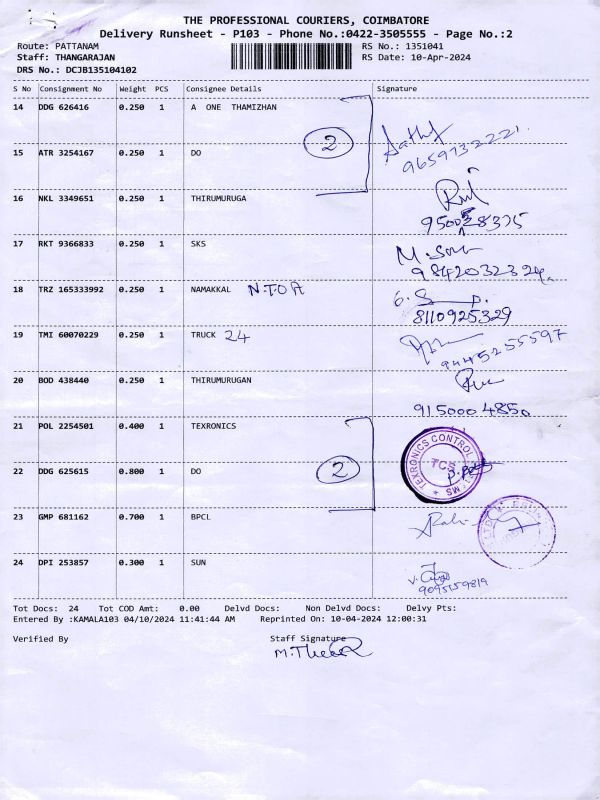 THE PROFESSIONAL COURIERS, COIMBATORE
Delivery Runsheet - P103 - Phone No.:0422-3505555 - Page No.:2
Route: PATTANAM RS No.: 1351041
Staff: THANGARAJAN RS Date: 10-Apr-2024
DRS No.: DCJB135104102
S No Consignment No Weight PCS Consignee Details Signature
14 DDG 626416 0.250 1 A ONE THAMIZHAN
2 9659732221
15 ATR 3254167 0.250 1 DO
16 NKL 3349651 0.250 1 THIRUMURUGA
17 RKT 9366833 0.250 1 SKS
9842032324
18 TRZ 165333992 0.250 1 NAMAKKAL N.TOA
8110925329
19 TMI 60070229 0.250 1 TRUCK 24
9445255597
20 BOD 438440 0.250 1 THIRUMURUGAN
9150004850
21 POL 2254501 0.400 1 TEXRONICS
TEXRONICS CONTROL
TCS
22 DDG 625615 0.800 1 DO 2
23 GMP 681162 0.700 1 BPCL
24 DPI 253857 0.300 1 SUN
9095159819
Tot Docs: 24 Tot COD Amt: 0.00 Delvd Docs: Non Delvd Docs: Delvy Pts:
Entered By :KAMALA103 04/10/2024 11:41:44 AM Reprinted On: 10-04-2024 12:00:31
Verified By Staff Signature